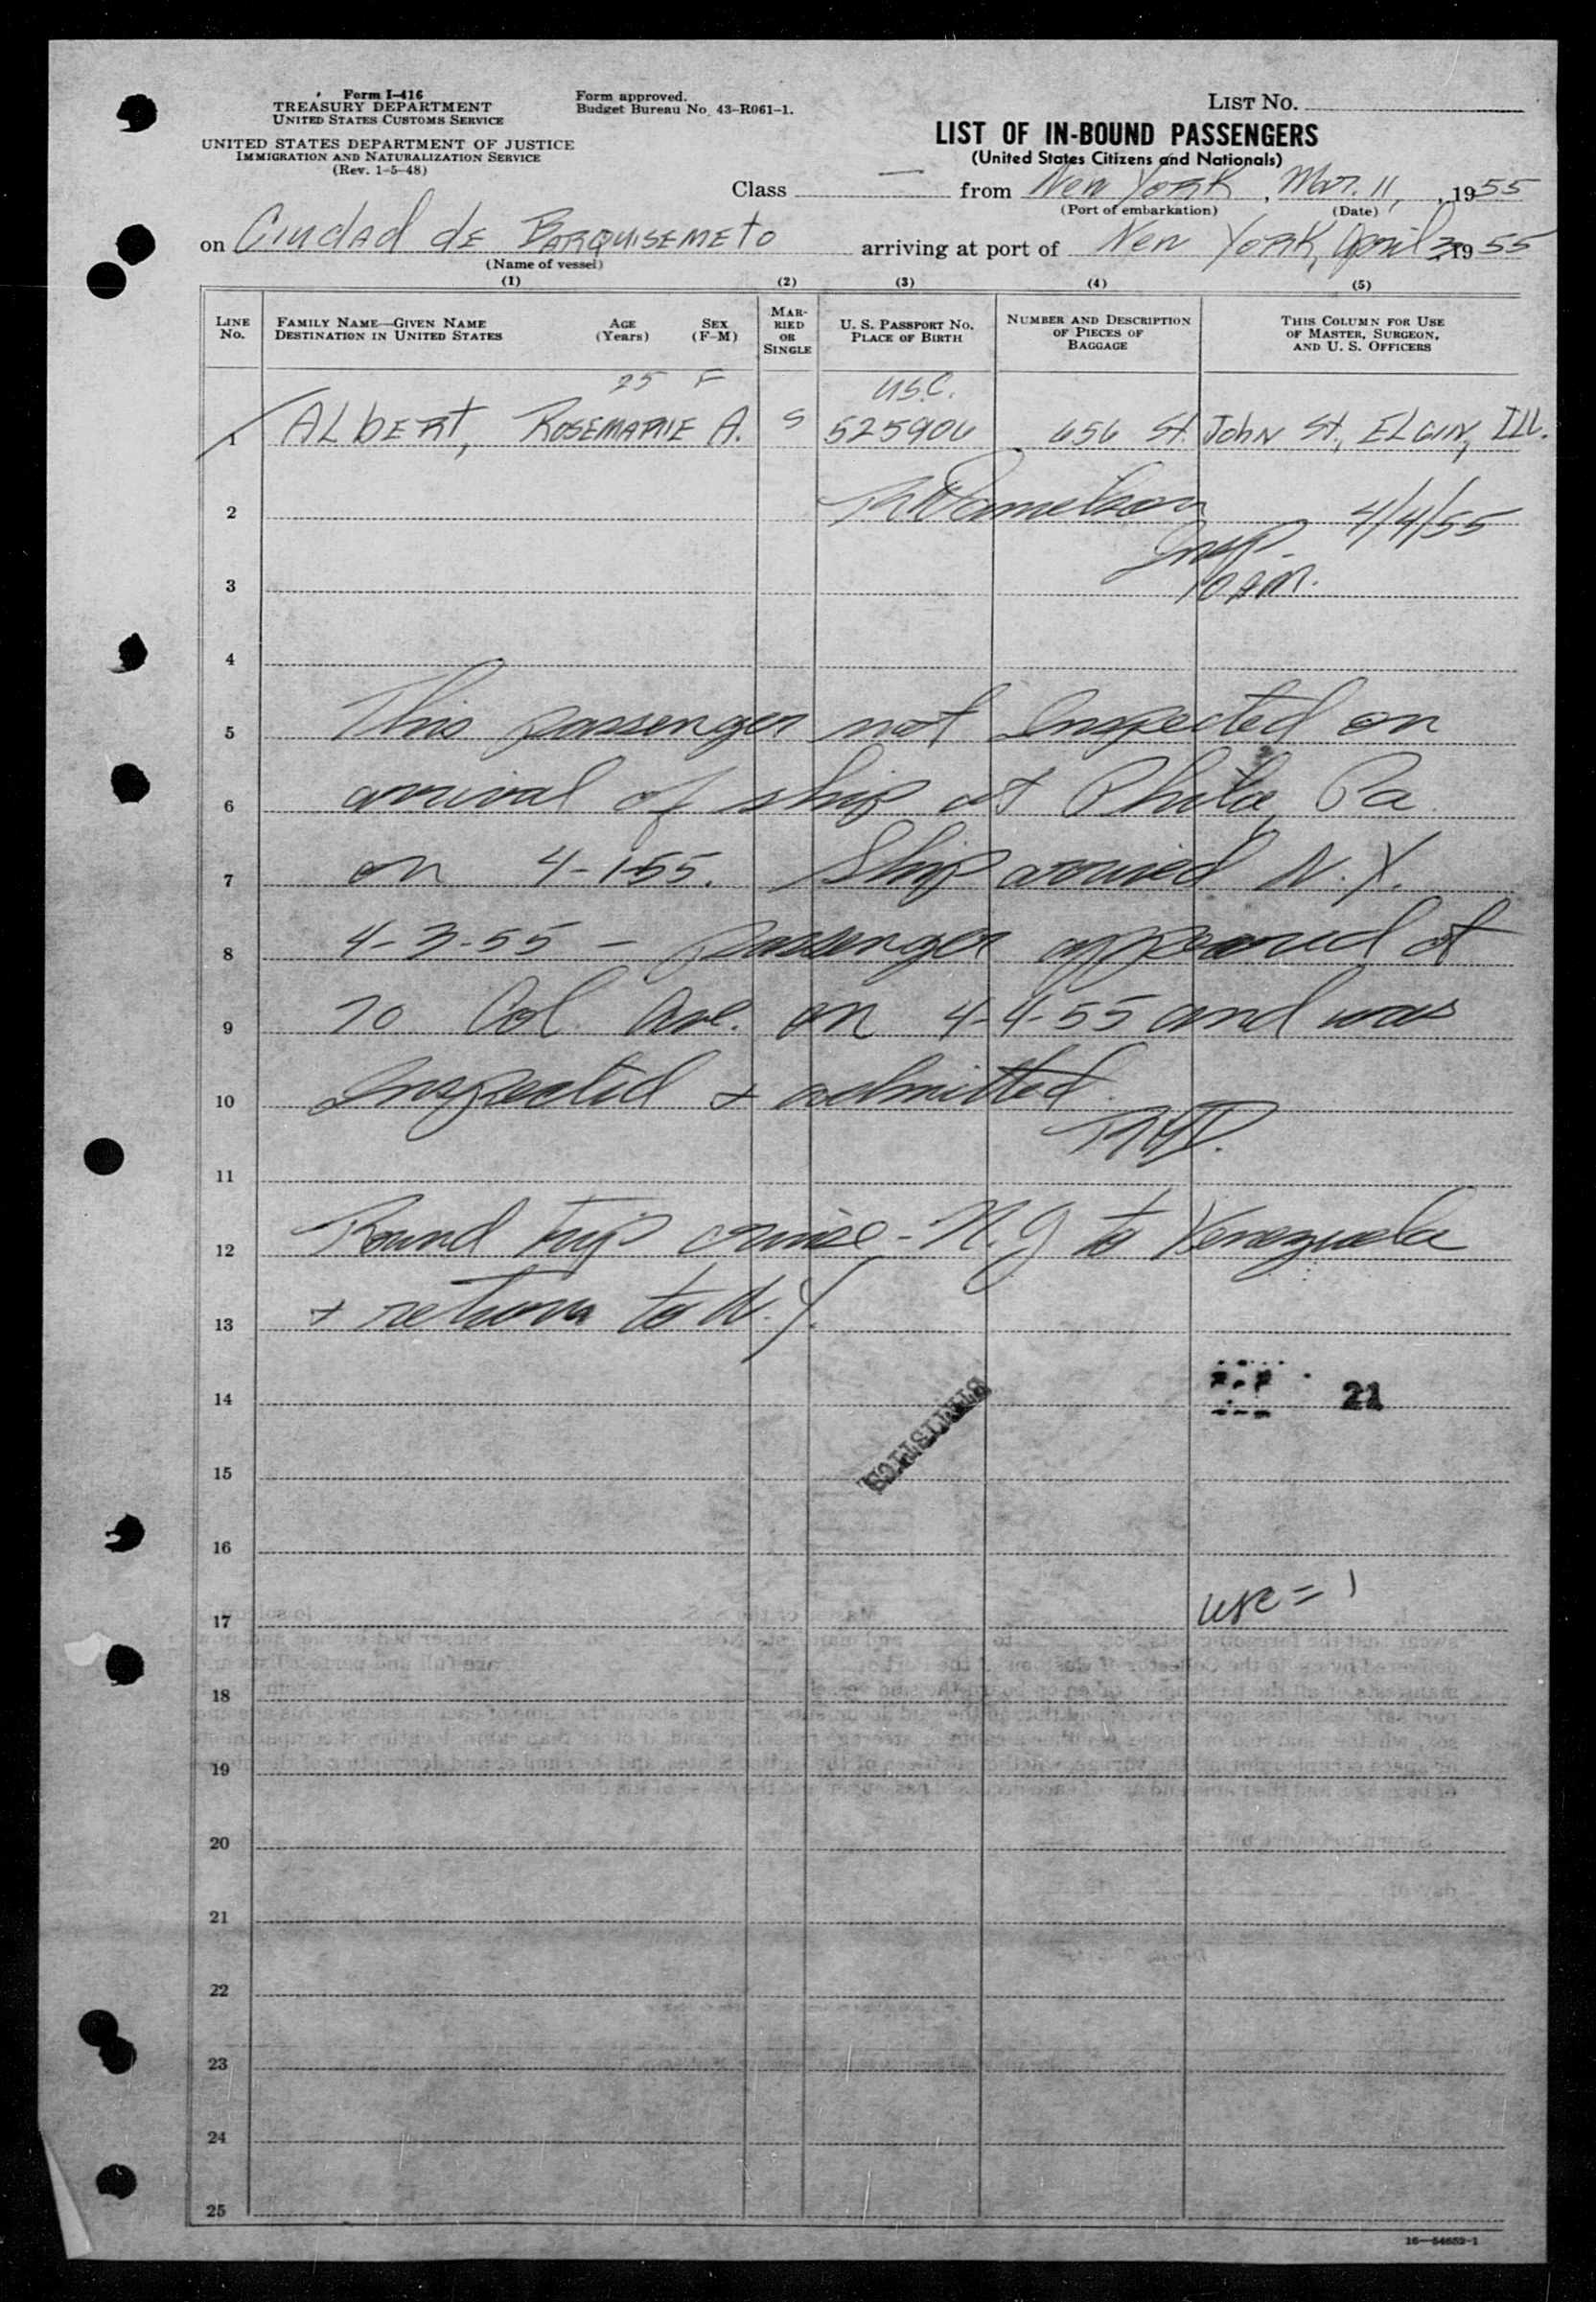 Form I-416
TREASURY DEPARTMENT
UNITED STATES CUSTOMS SERVICE
UNITED STATES DEPARTMENT OF JUSTICE
IMMIGRATION AND NATURALIZATION SERVICE
(Rev. 1-5-48)
Form approved.
Budget Bureau No. 43-R061-1.
LIST NO.
LIST OF IN-BOUND PASSENGERS
(United States Citizens and Nationals)
Class — from New York, Mar. 11, 1955
(Port of embarkation) (Date)
on Ciudad de Barquisemeto arriving at port of New York, April 3, 1955
(Name of vessel)
(1) (2) (3) (4) (5)
LINE No.
FAMILY NAME—GIVEN NAME
DESTINATION IN UNITED STATES
AGE (Years)
SEX (F-M)
MARRIED OR SINGLE
U. S. PASSPORT No.
PLACE OF BIRTH
NUMBER AND DESCRIPTION
OF PIECES OF
BAGGAGE
THIS COLUMN FOR USE
OF MASTER, SURGEON,
AND U. S. OFFICERS
25 F USC.
1 ALbERT, ROSEMARIE A. S 525906 656 St. John St., ELGIN, ILL.
2 4/4/55
Insp.
3 10 AM.
4
5 This passenger not Inspected on
6 arrival of ship at Phila, Pa.
7 on 4-1-55. Ship arrived N.Y.
8 4-3-55 - passenger appeared at
9 70 Col. Ave. on 4-4-55 and was
10 Inspected + admitted.
RHD.
11
12 Round trip cruise - N.Y to Venezuela
13 + return to N.Y.
14 21
STATISTICS
15
16
17 USC = 1
18
19
20
21
22
23
24
25
16—54652-1